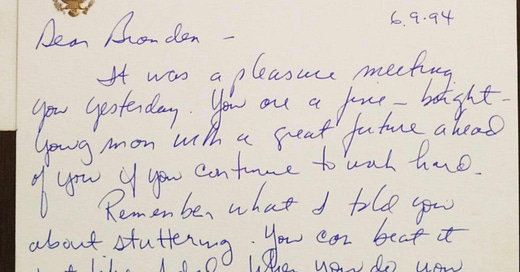 6.9.94
Dear Branden -
It was a pleasure meeting
you yesterday. You are a fine - bright -
young man with a great future ahead
of you if you continue to work hard.
Remember what I told you
about stuttering. You can beat it
just like I did. When you do, you